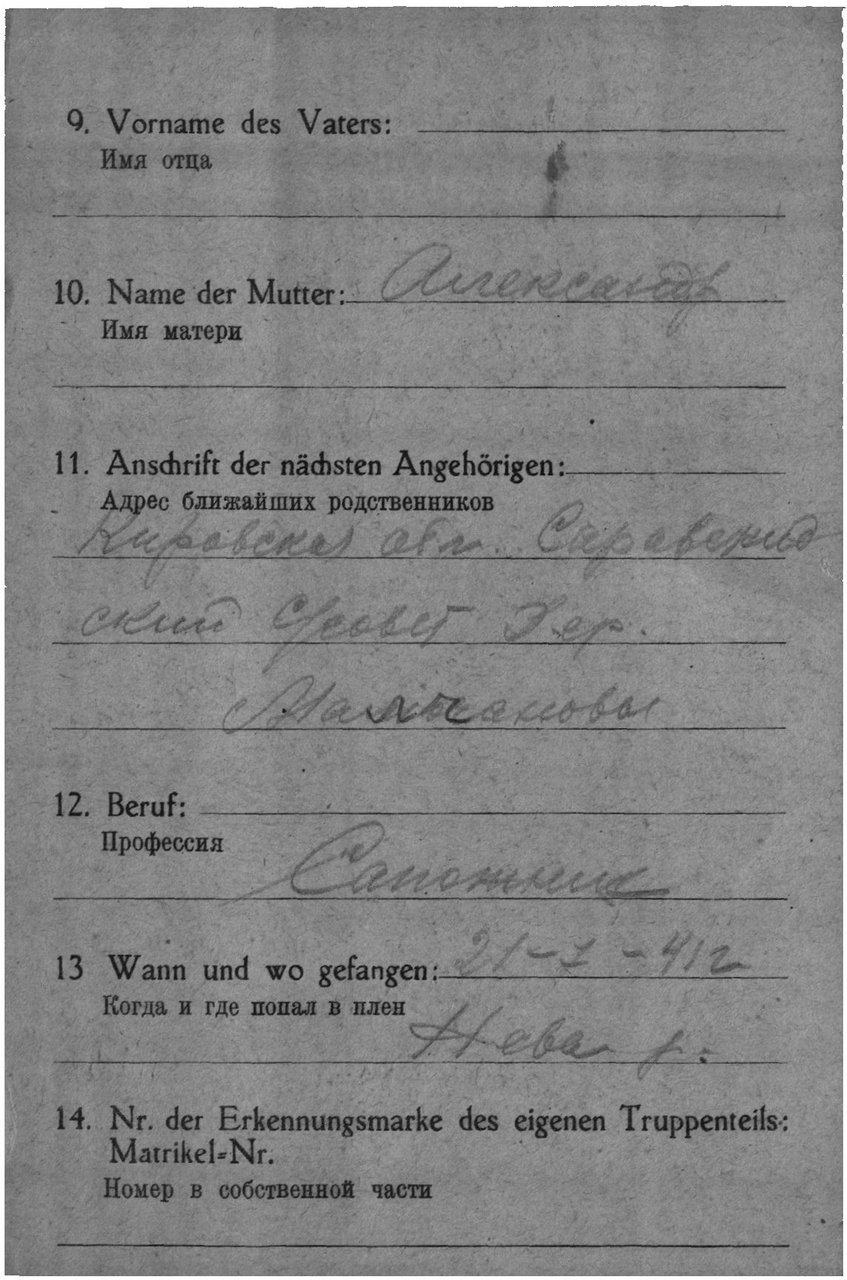 9. Vorname des Vaters:
Имя отца
10. Name der Mutter: Александр
Имя матери
11. Anschrift der nächsten Angehörigen:
Адрес ближайших родственников
Кировская обл.
ский Совет Дер.
12. Beruf:
Профессия
Сапожник
13 Wann und wo gefangen: 21-I-41г
Когда и где попал в плен
Нева р.
14. Nr. der Erkennungsmarke des eigenen Truppenteils:
Matrikel-Nr.
Номер в собственной части